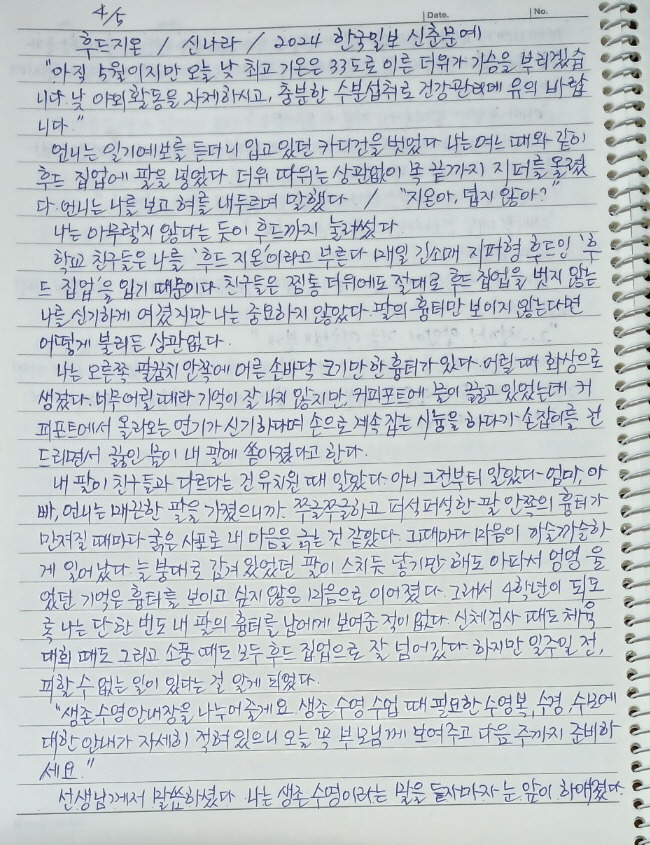 4/5
Date.
No.
후드지온 / 신나라 / 2024 한국일보 신춘문예
"아직 5월이지만 오늘 낮 최고 기온은 33도로 이른 더위가 기승을 부리겠습
니다. 낮 야외활동을 자제하시고, 충분한 수분섭취로 건강관리에 유의 바랍
니다."
언니는 일기예보를 듣더니 입고 있던 카디건을 벗었다. 나는 여느 때와 같이
후드 집업에 팔을 넣었다. 더위 따위는 상관없이 목 끝까지 지퍼를 올렸
다. 언니는 나를 보고 혀를 내두르며 말했다 / "지온아, 덥지 않아?"
나는 아무렇지 않다는 듯이 후드까지 눌러썼다
학교 친구들은 나를 '후드 지온'이라고 부른다 매일 긴소매 지퍼형 후드인 '후
드 집업'을 입기 때문이다. 친구들은 찜통 더위에도 절대로 후드 집업을 벗지 않는
나를 신기하게 여겼지만 나는 중요하지 않았다. 팔의 흉터만 보이지 않는다면
어떻게 불리든 상관없다.
나는 오른쪽 팔꿈치 안쪽에 어른 손바닥 크기만한 흉터가 있다. 어릴 때 화상으로
생겼다. 너무 어릴 때라 기억이 잘 나지 않지만, 커피포트에 물이 끓고 있었는데 커
피포트에서 올라오는 연기가 신기하다며 손으로 계속 잡는 시늉을 하다가 손잡이를 건
드리면서 끓인 물이 내 팔에 쏟아졌다고 한다.
내 팔이 친구들과 다르다는 건 유치원 때 알았다. 아니 그전부터 알았다. 엄마, 아
빠, 언니는 매끈한 팔을 가졌으니까. 쭈글쭈글하고 퍼석퍼석한 팔 안쪽의 흉터가
만져질 때마다 굵은 사포로 내 마음을 긁는 것 같았다. 그때마다 마음이 까슬까슬하
게 일어났다. 늘 붕대로 감겨 있었던 팔이 스치듯 닿기만 해도 아파서 엉엉 울
었던 기억은 흉터를 보이고 싶지 않은 마음으로 이어졌다. 그래서 4학년이 되도
록 나는 단 한 번도 내 팔의 흉터를 남에게 보여준 적이 없다. 신체검사 때도 체육
대회 때도 그리고 소풍 때도 모두 후드 집업으로 잘 넘어갔다. 하지만 일주일 전,
피할 수 없는 일이 있다는 걸 알게 되었다.
"생존 수영 안내장을 나누어 줄게요. 생존 수영 수업 때 필요한 수영복, 수경, 수모에
대한 안내가 자세히 적혀 있으니 오늘 꼭 부모님께 보여주고 다음 주까지 준비하
세요."
선생님께서 말씀하셨다. 나는 생존 수영이라는 말을 듣자마자 눈 앞이 하얘졌다.